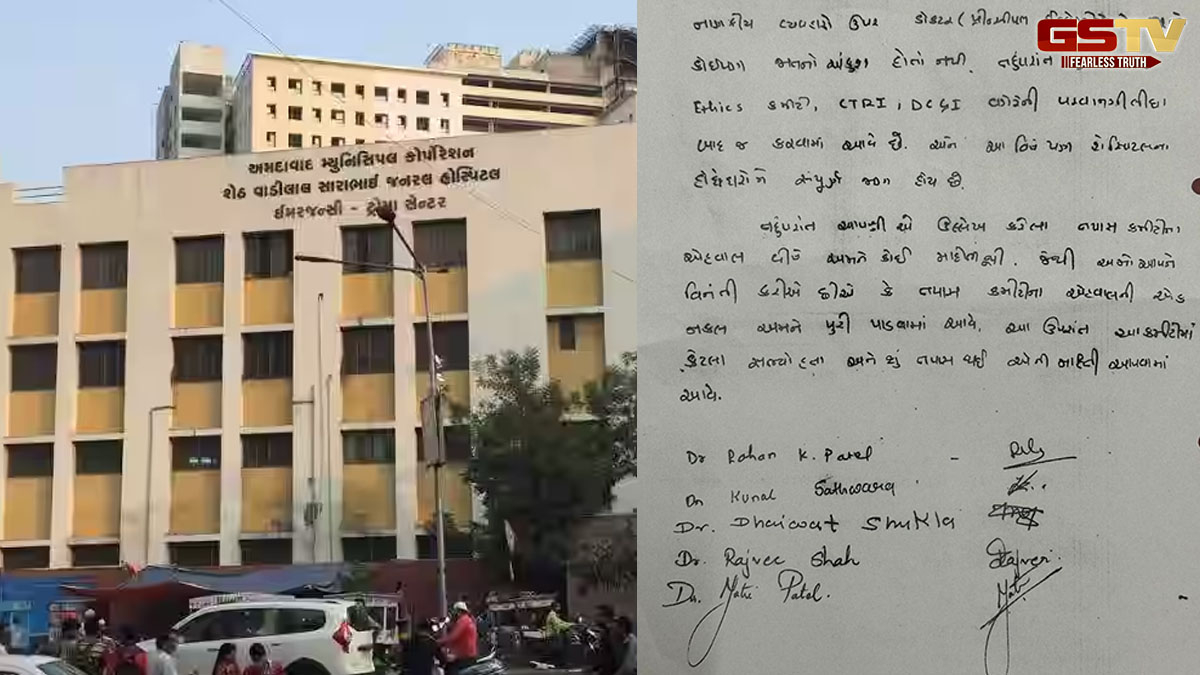 અમદાવાદ મ્યુનિસિપલ કોર્પોરેશન
શેઠ વાડીલાલ સારાભાઈ જનરલ હોસ્પિટલ
ઈમરજન્સી - ટ્રોમા સેન્ટર
GSTV
FEARLESS TRUTH
નાણાકીય વ્યવહારો ઉપર ડોક્ટર
કોઈપણ જાતનો અંકુશ હોતો નથી. તદુપરાંત
Ethics કમીટી, CTRI, DCGI પરવાનગી લીધા
બાદ જ કરવામાં આવે છે. આ હોસ્પિટલના
હોદ્દેદારોને સંપૂર્ણ જાણ હોય છે.
તદુપરાંત આપશ્રી એ ઉલ્લેખ કરેલા તપાસ કમીટીના
અહેવાલ વીશે અમને કોઈ માહીતી નથી. જેથી અમો આપને
વિનંતી કરીએ છીએ કે તપાસ કમીટીના અહેવાલની એક
નકલ અમને પુરી પાડવામાં આવે. આ ઉપરાંત આ કમીટીમાં
કેટલા સભ્યો હતા અને શું તપાસ થઈ એની માહિતી આપવામાં
આવે.
Dr Rohan K. Patel -
Dr Kunal Sathwara
Dr. Dhaiwat Shukla
Dr. Rajvee Shah Rajvee.
Dr. Maitri Patel.